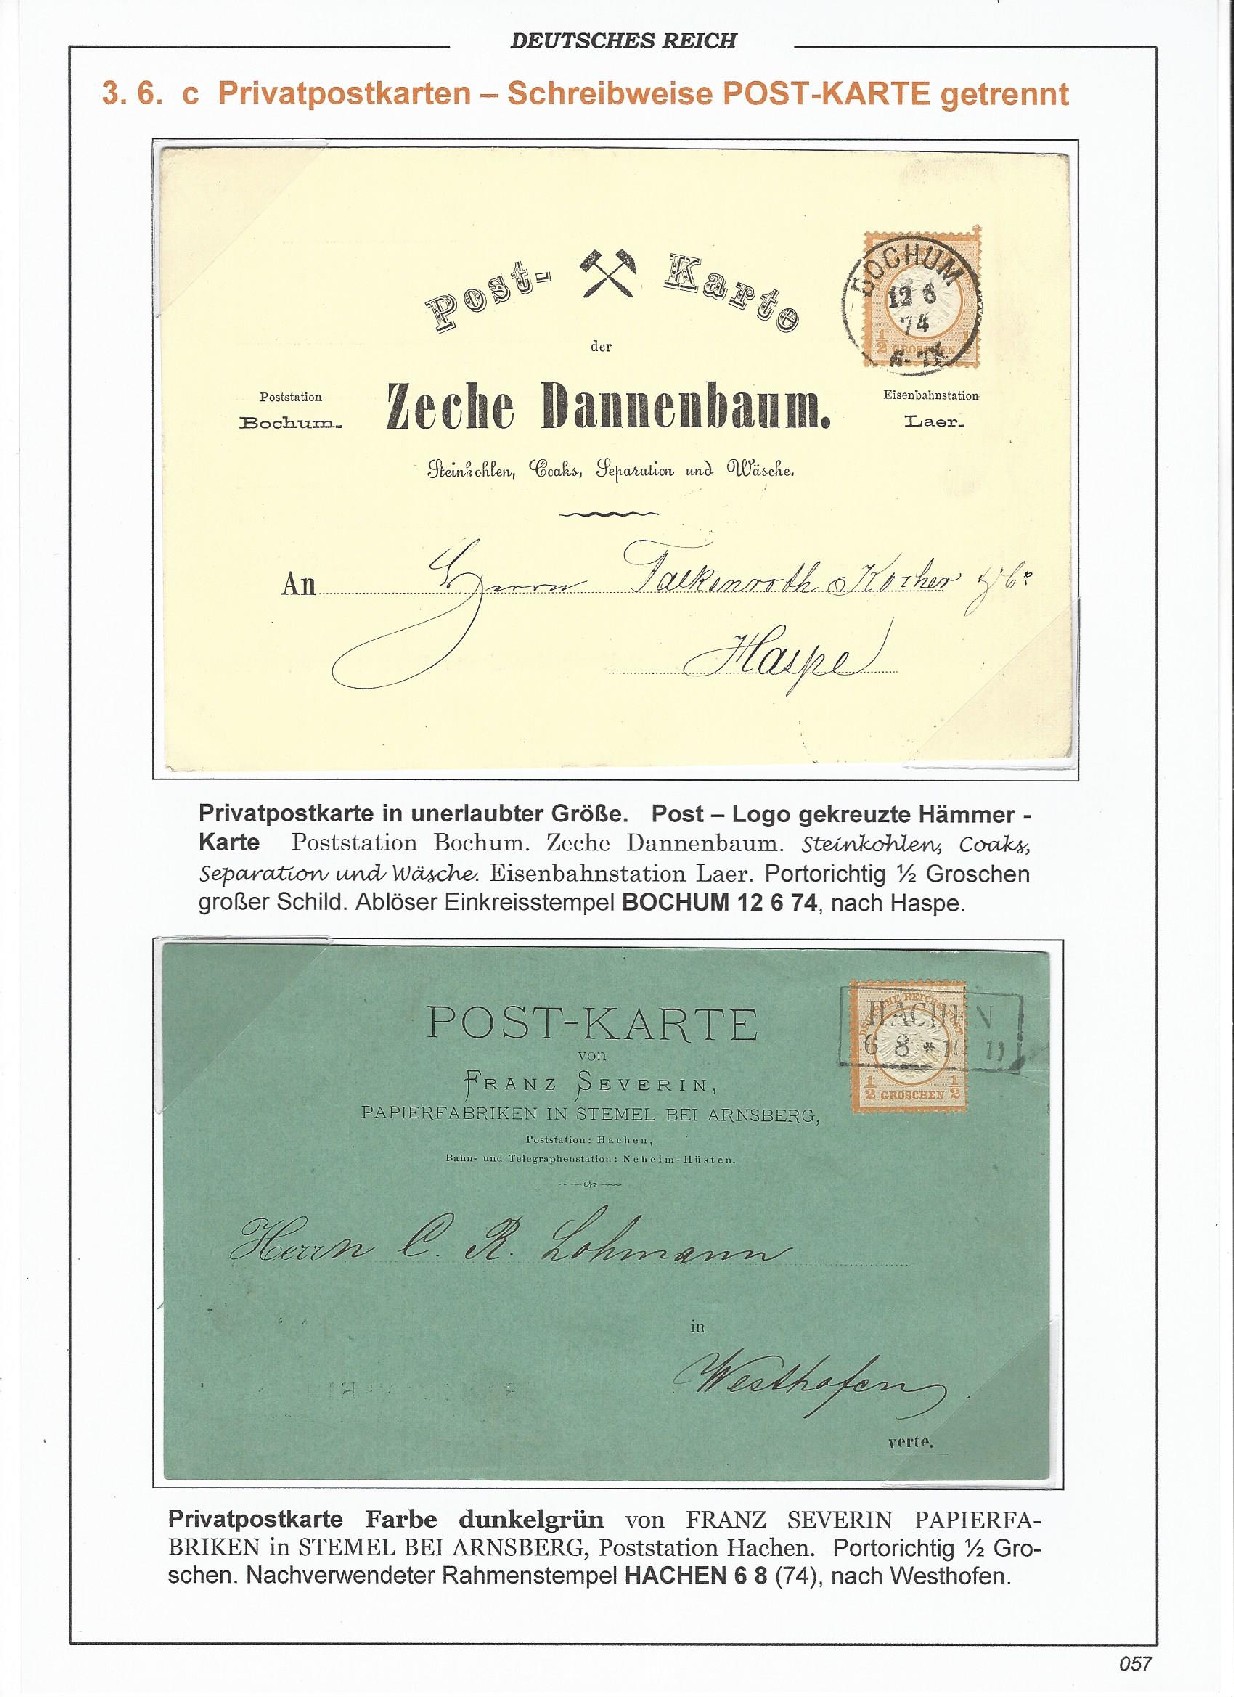 DEUTSCHES REICH
3. 6. c Privatpostkarten – Schreibweise POST-KARTE getrennt
Post- Karte
der
Zeche Dannenbaum.
Poststation
Bochum.
Eisenbahnstation
Laer.
Steinkohlen, Coaks, Separation und Wäsche.
BOCHUM
12 6
74
1/2 GROSCHEN
An Herrn Falkenroth & Kocher
Haspe
Privatpostkarte in unerlaubter Größe. Post – Logo gekreuzte Hämmer -
Karte Poststation Bochum. Zeche Dannenbaum. Steinkohlen, Coaks,
Separation und Wäsche. Eisenbahnstation Laer. Portorichtig ½ Groschen
großer Schild. Ablöser Einkreisstempel BOCHUM 12 6 74, nach Haspe.
POST-KARTE
von
FRANZ SEVERIN,
PAPIERFABRIKEN IN STEMEL BEI ARNSBERG,
Poststation: Hachen,
Bahn- und Telegraphenstation: Neheim-Hüsten.
HACHEN
6 8 *
½ GROSCHEN ½
Herrn C. R. Lohmann
in
Westhofen
verte.
Privatpostkarte Farbe dunkelgrün von FRANZ SEVERIN PAPIERFA-
BRIKEN in STEMEL BEI ARNSBERG, Poststation Hachen. Portorichtig ½ Gro-
schen. Nachverwendeter Rahmenstempel HACHEN 6 8 (74), nach Westhofen.
057